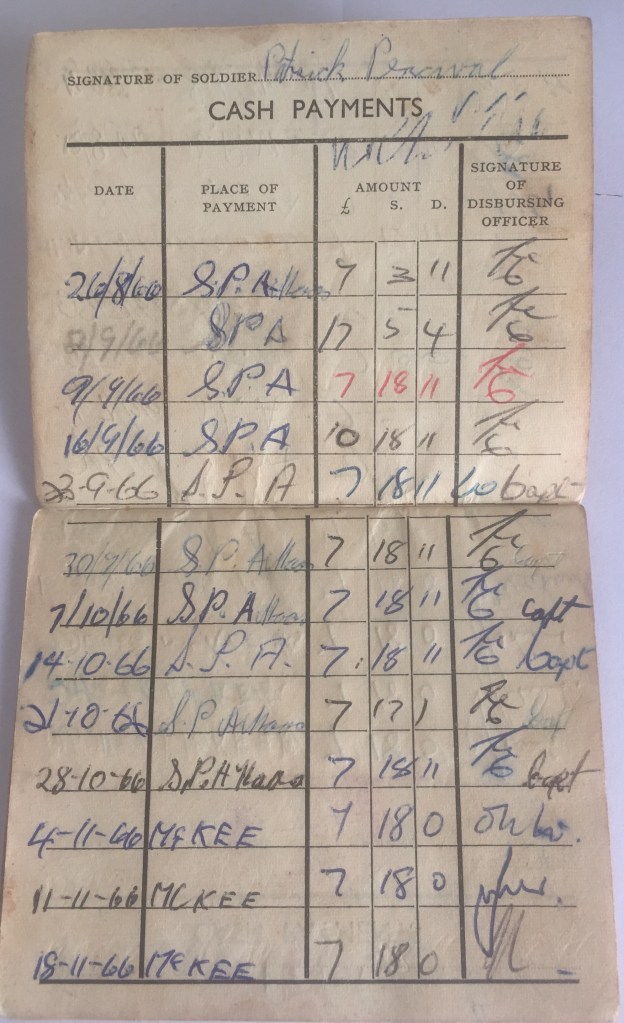 SIGNATURE OF SOLDIER Patrick Percival
CASH PAYMENTS
DATE PLACE OF PAYMENT AMOUNT £ S. D. SIGNATURE OF DISBURSING OFFICER
26/8/66 S.P.A 7 3 11
2/9/66 SPA 17 5 4
9/9/66 S.P.A 7 18 11
16/9/66 S.P.A 10 18 11
23-9-66 S.P.A 7 18 11 Capt
30/9/66 S.P. 7 18 11 Capt
7/10/66 S.P.A 7 18 11 Capt
14-10-66 S.P.A. 7 18 11 Capt
21-10-66 S.P 7 17 1 Capt
28-10-66 S.P. 7 18 11 Capt
4-11-66 McKEE 7 18 0
11-11-66 McKEE 7 18 0
18-11-66 McKEE 7 18 0